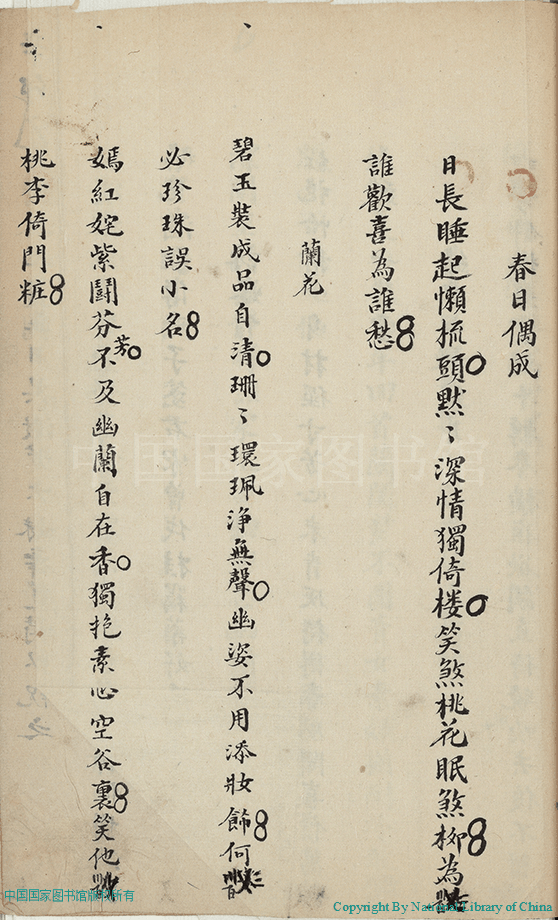 春日偶成
日長睡起懶梳頭默〻深情獨倚楼笑煞桃花眠煞柳為
誰歡喜為誰愁
蘭花
碧玉裝成品自清珊〻環珮淨無聲幽姿不用添妝飾何
必珍珠誤小名
嫣紅姹紫鬪芬芳不及幽蘭自在香獨抱素心空谷裏笑他
桃李倚門粧
中国国家图书馆
中国国家图书馆版权所有
Copyright By National Library of China